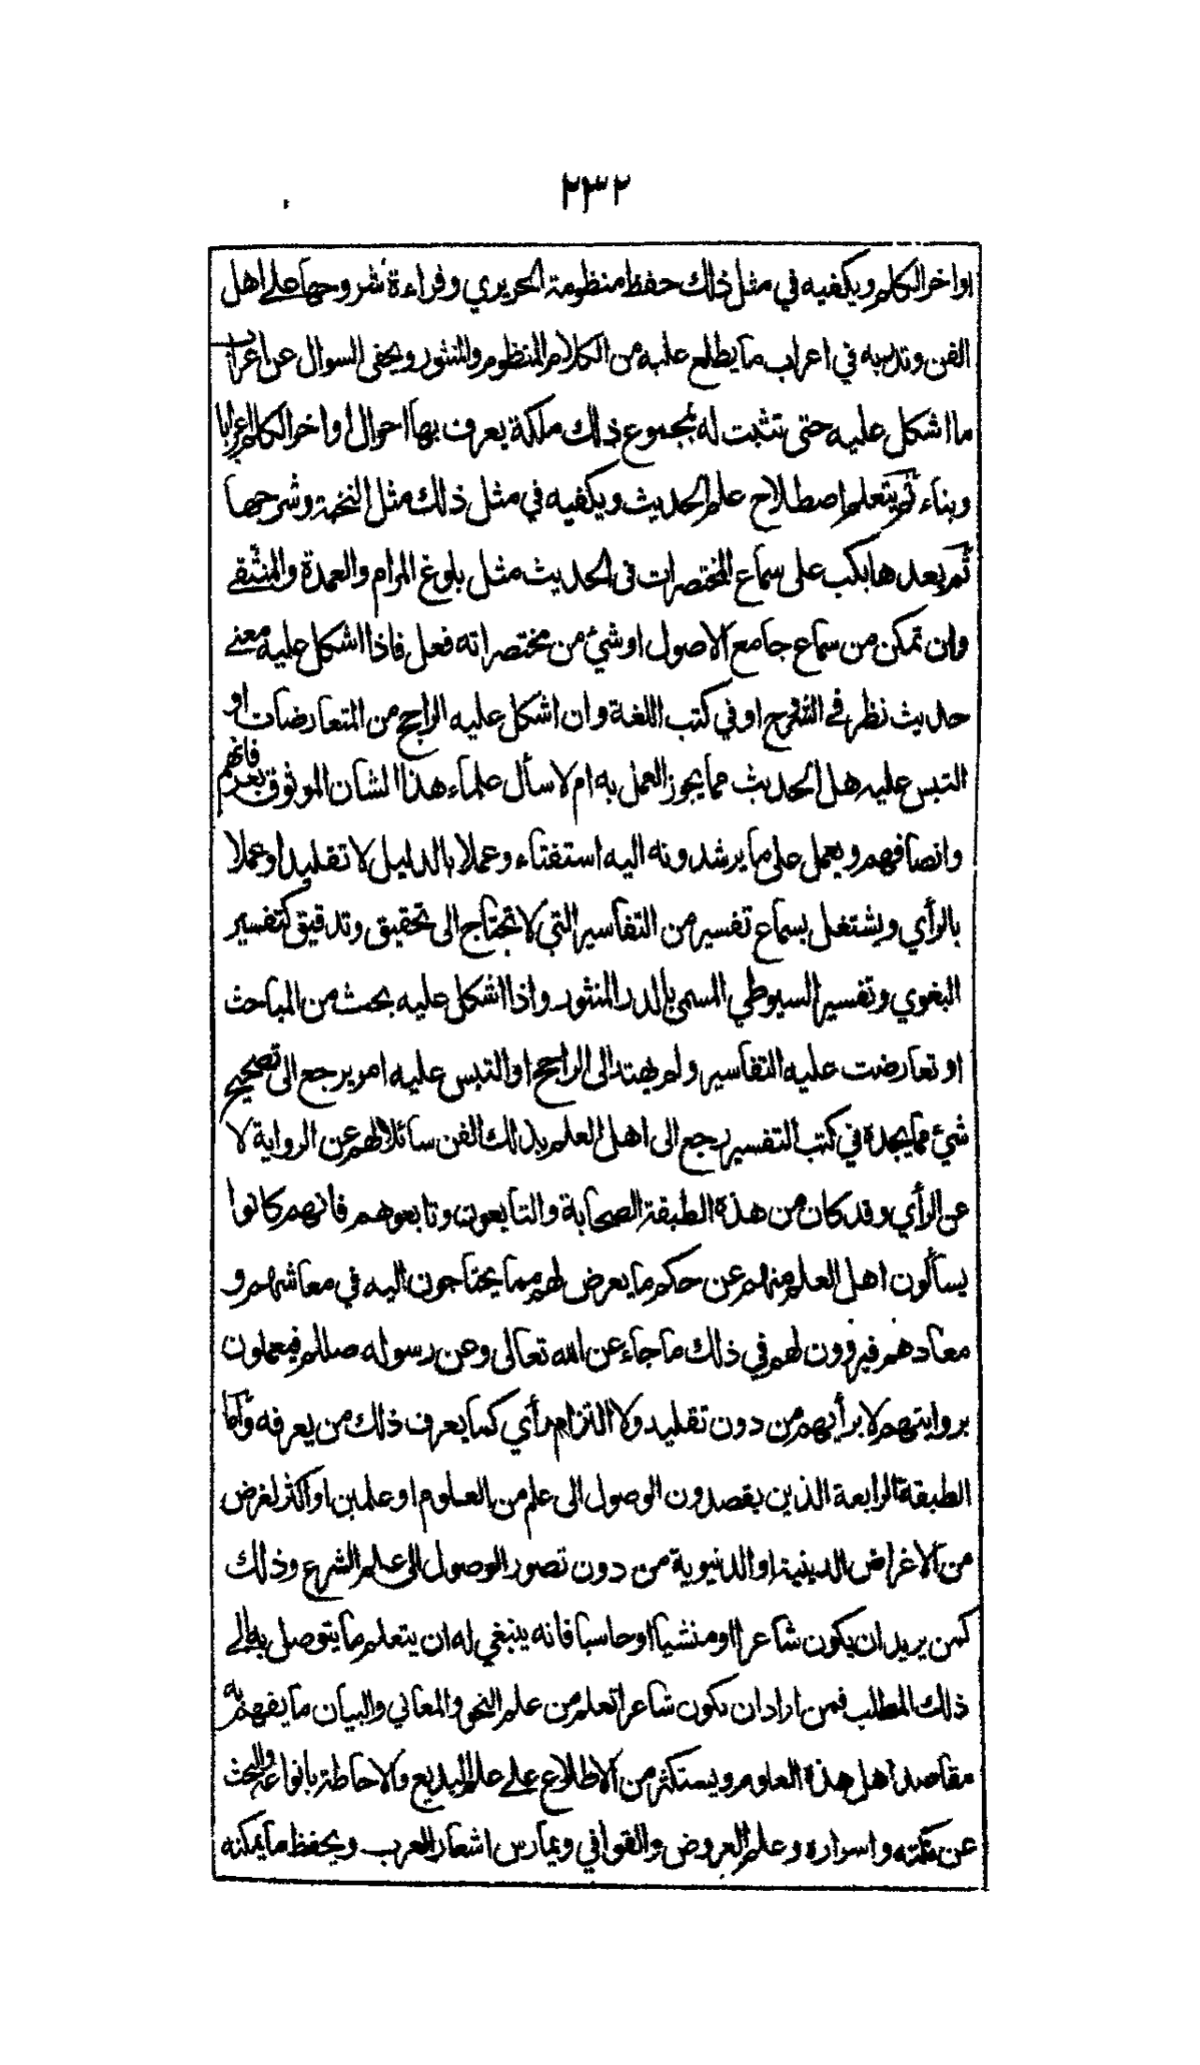 ٢٣٢
اواخر الكلم ويكفيه في مثل ذلك حفظ منظومة الحريري وقراءة شروحها على اهل
الفن وتدربه في اعراب ما يطلع عليه من الكلام المنظوم والمنثور ويحفى السوال عن اعراب
ما اشكل عليه حتى تثبت له بمجموع ذلك ملكة يعرف بها احوال اواخر الكلم اعرابا
وبناء ثم يتعلم اصطلاح علم الحديث ويكفيه في مثل ذلك مثل النخبة وشرحها
ثم بعدها يكب على سماع المختصرات في الحديث مثل بلوغ المرام والعمدة والمنتقى
وان تمكن من سماع جامع الاصول او شئ من مختصراته فعل فاذا اشكل عليه معنى
حديث نظر في الشرح او في كتب اللغة وان اشكل عليه الراجح من المتعارضات او
التبس عليه هل الحديث مما يجوز العمل به ام لا سأل علماء هذا الشان الموثوق بعرفانهم
وانصافهم ويعمل على ما يرشدونه اليه استفتاء وعملا بالدليل لا تقليدا وعملا
بالرأي ويشتغل بسماع تفسير من التفاسير التي لا تحتاج الى تحقيق وتدقيق كتفسير
البغوي وتفسير السيوطي المسمى بالدر المنثور واذا اشكل عليه بحث من المباحث
او تعارضت عليه التفاسير ولم يهتد الى الراجح او التبس عليه امر يرجع الى تصحيح
شئ مما يجده في كتب التفسير رجع الى اهل العلم بذلك الفن سائلا لهم عن الرواية لا
عن الرأي وقد كان من هذه الطبقة الصحابة والتابعون وتابعوهم فانهم كانوا
يسألون اهل العلم منهم عن حكم ما يعرض لهم مما يحتاجون اليه في معاشهم و
معادهم فيروون لهم في ذلك ما جاء عن الله تعالى وعن رسوله صللم فيعملون
بروايتهم لا برأيهم من دون تقليد ولا التزام رأي كما يعرف ذلك من يعرفه واما
الطبقة الرابعة الذين يقصدون الوصول الى علم من العلوم او علمين او اكثر لغرض
من الاغراض الدينية او الدنيوية من دون تصور الوصول الى علم الشرع وذلك
كمن يريد ان يكون شاعرا او منشيا او حاسبا فانه ينبغي له ان يتعلم ما يتوصل به الى
ذلك المطلب فمن اراد ان يكون شاعرا تعلم من علم النحو والمعاني والبيان ما يفهم به
مقاصد اهل هذه العلوم ويستكثر من الاطلاع على علم البديع والاحاطة بانواعه والبحث
عن نكته واسراره وعلم العروض والقوافي ويمارس اشعار العرب ويحفظ ما يمكنه